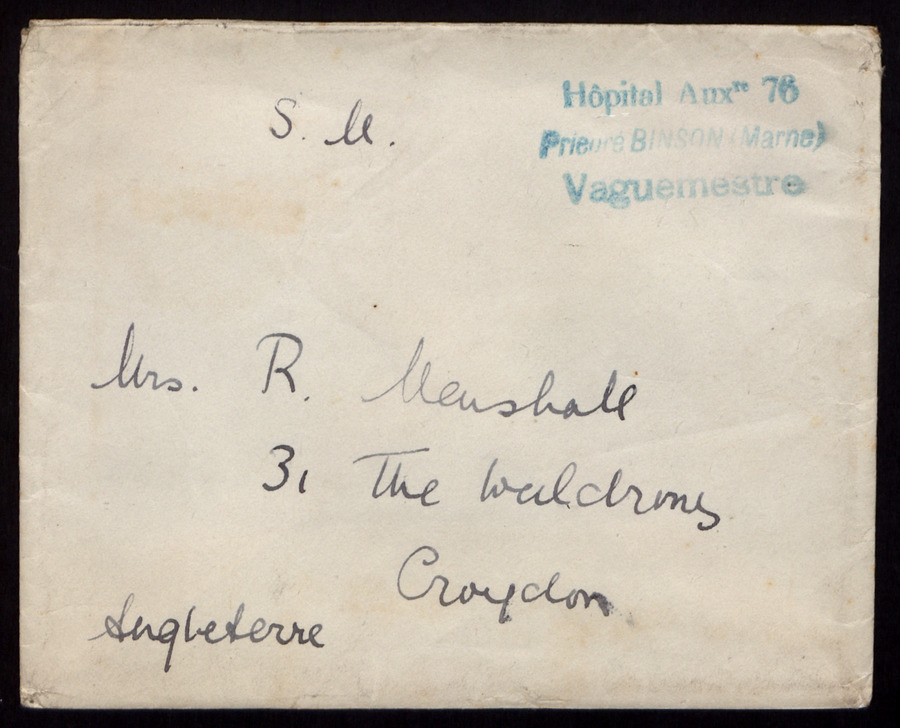 S. M.
Hôpital Auxre 76
Prieuré BINSON (Marne)
Vaguemestre
Mrs. R. Marshall
31 The Waldrons
Croydon
Angleterre